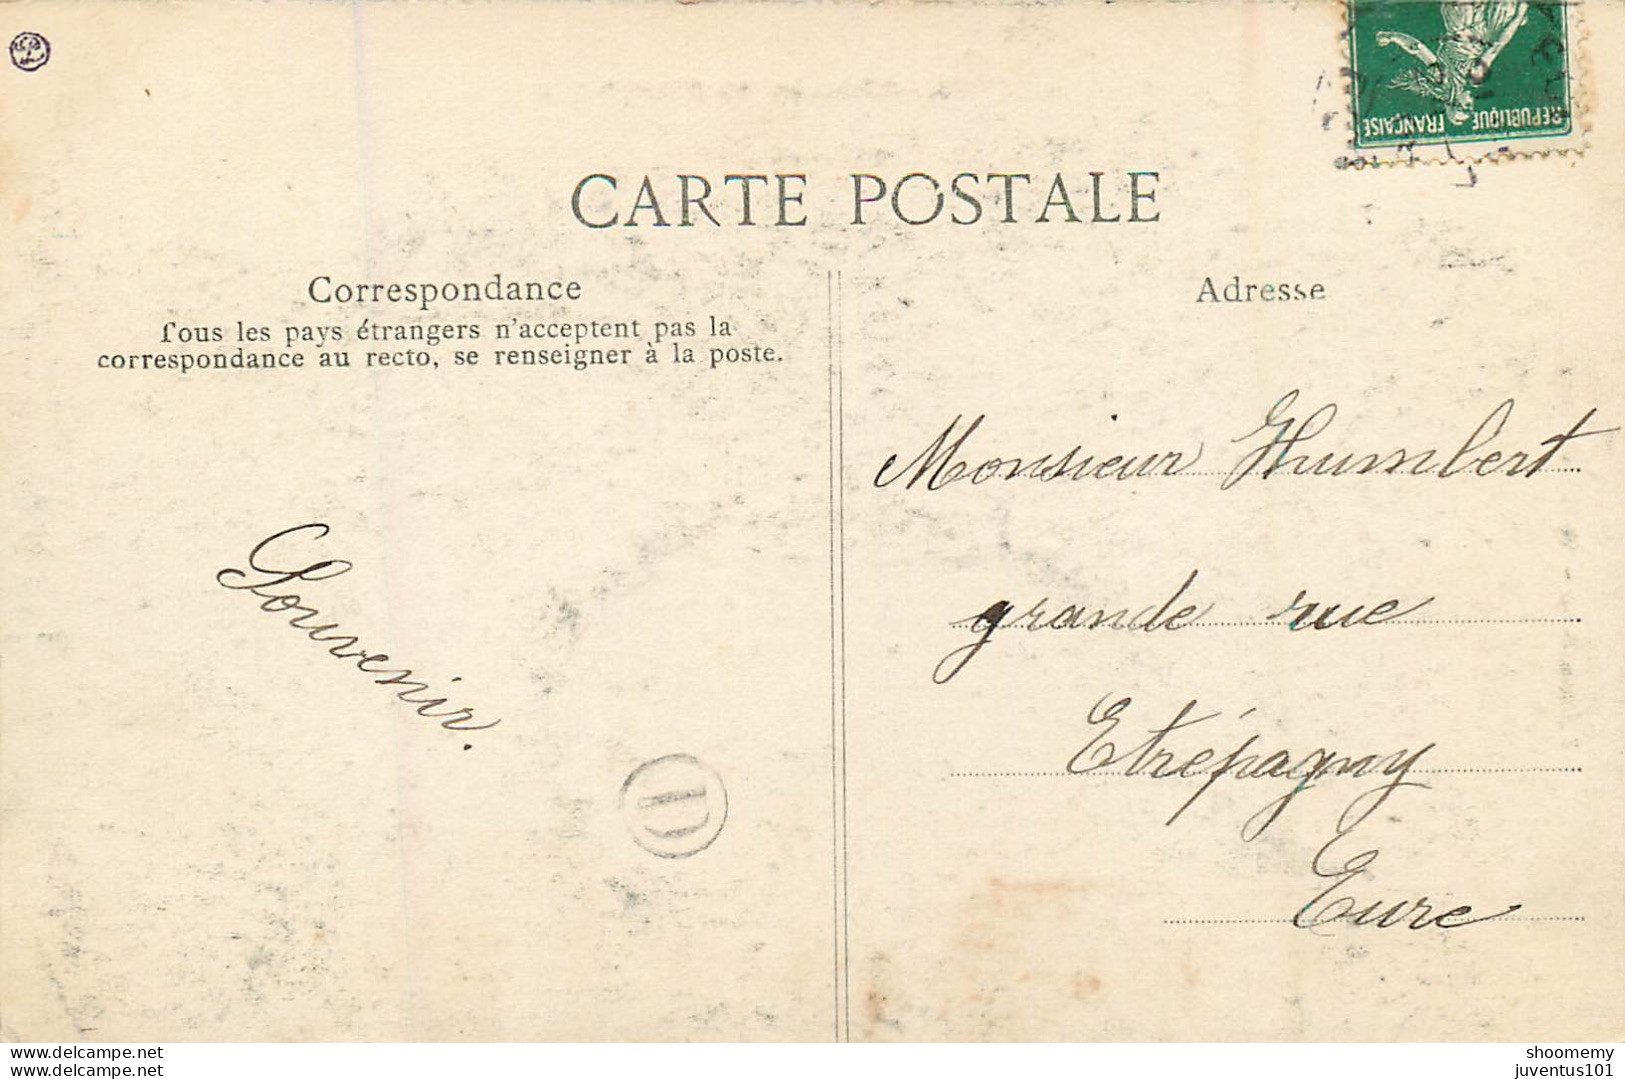 RÉPUBLIQUE FRANÇAISE
CARTE POSTALE
Correspondance
Tous les pays étrangers n'acceptent pas la
correspondance au recto, se renseigner à la poste.
Souvenir.
D
Adresse
Monsieur Humbert
grande rue
Etrépagny
Eure
www.delcampe.net
juventus101
shoomemy
juventus101